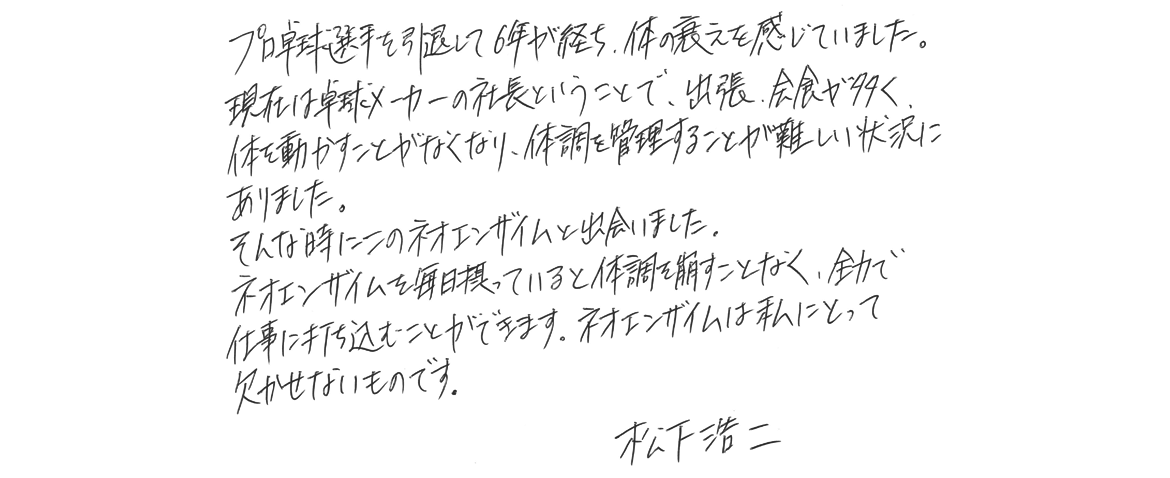 プロ卓球選手を引退して6年が経ち、体の衰えを感じていました。
現在は卓球メーカーの社長ということで、出張、会食が多く、
体を動かすことがなくなり、体調を管理することが難しい状況に
ありました。
そんな時にこのネオエンザイムと出会いました。
ネオエンザイムを毎日摂っていると体調を崩すことなく、全力で
仕事に打ち込むことができます。ネオエンザイムは私にとって
欠かせないものです。
松下浩二